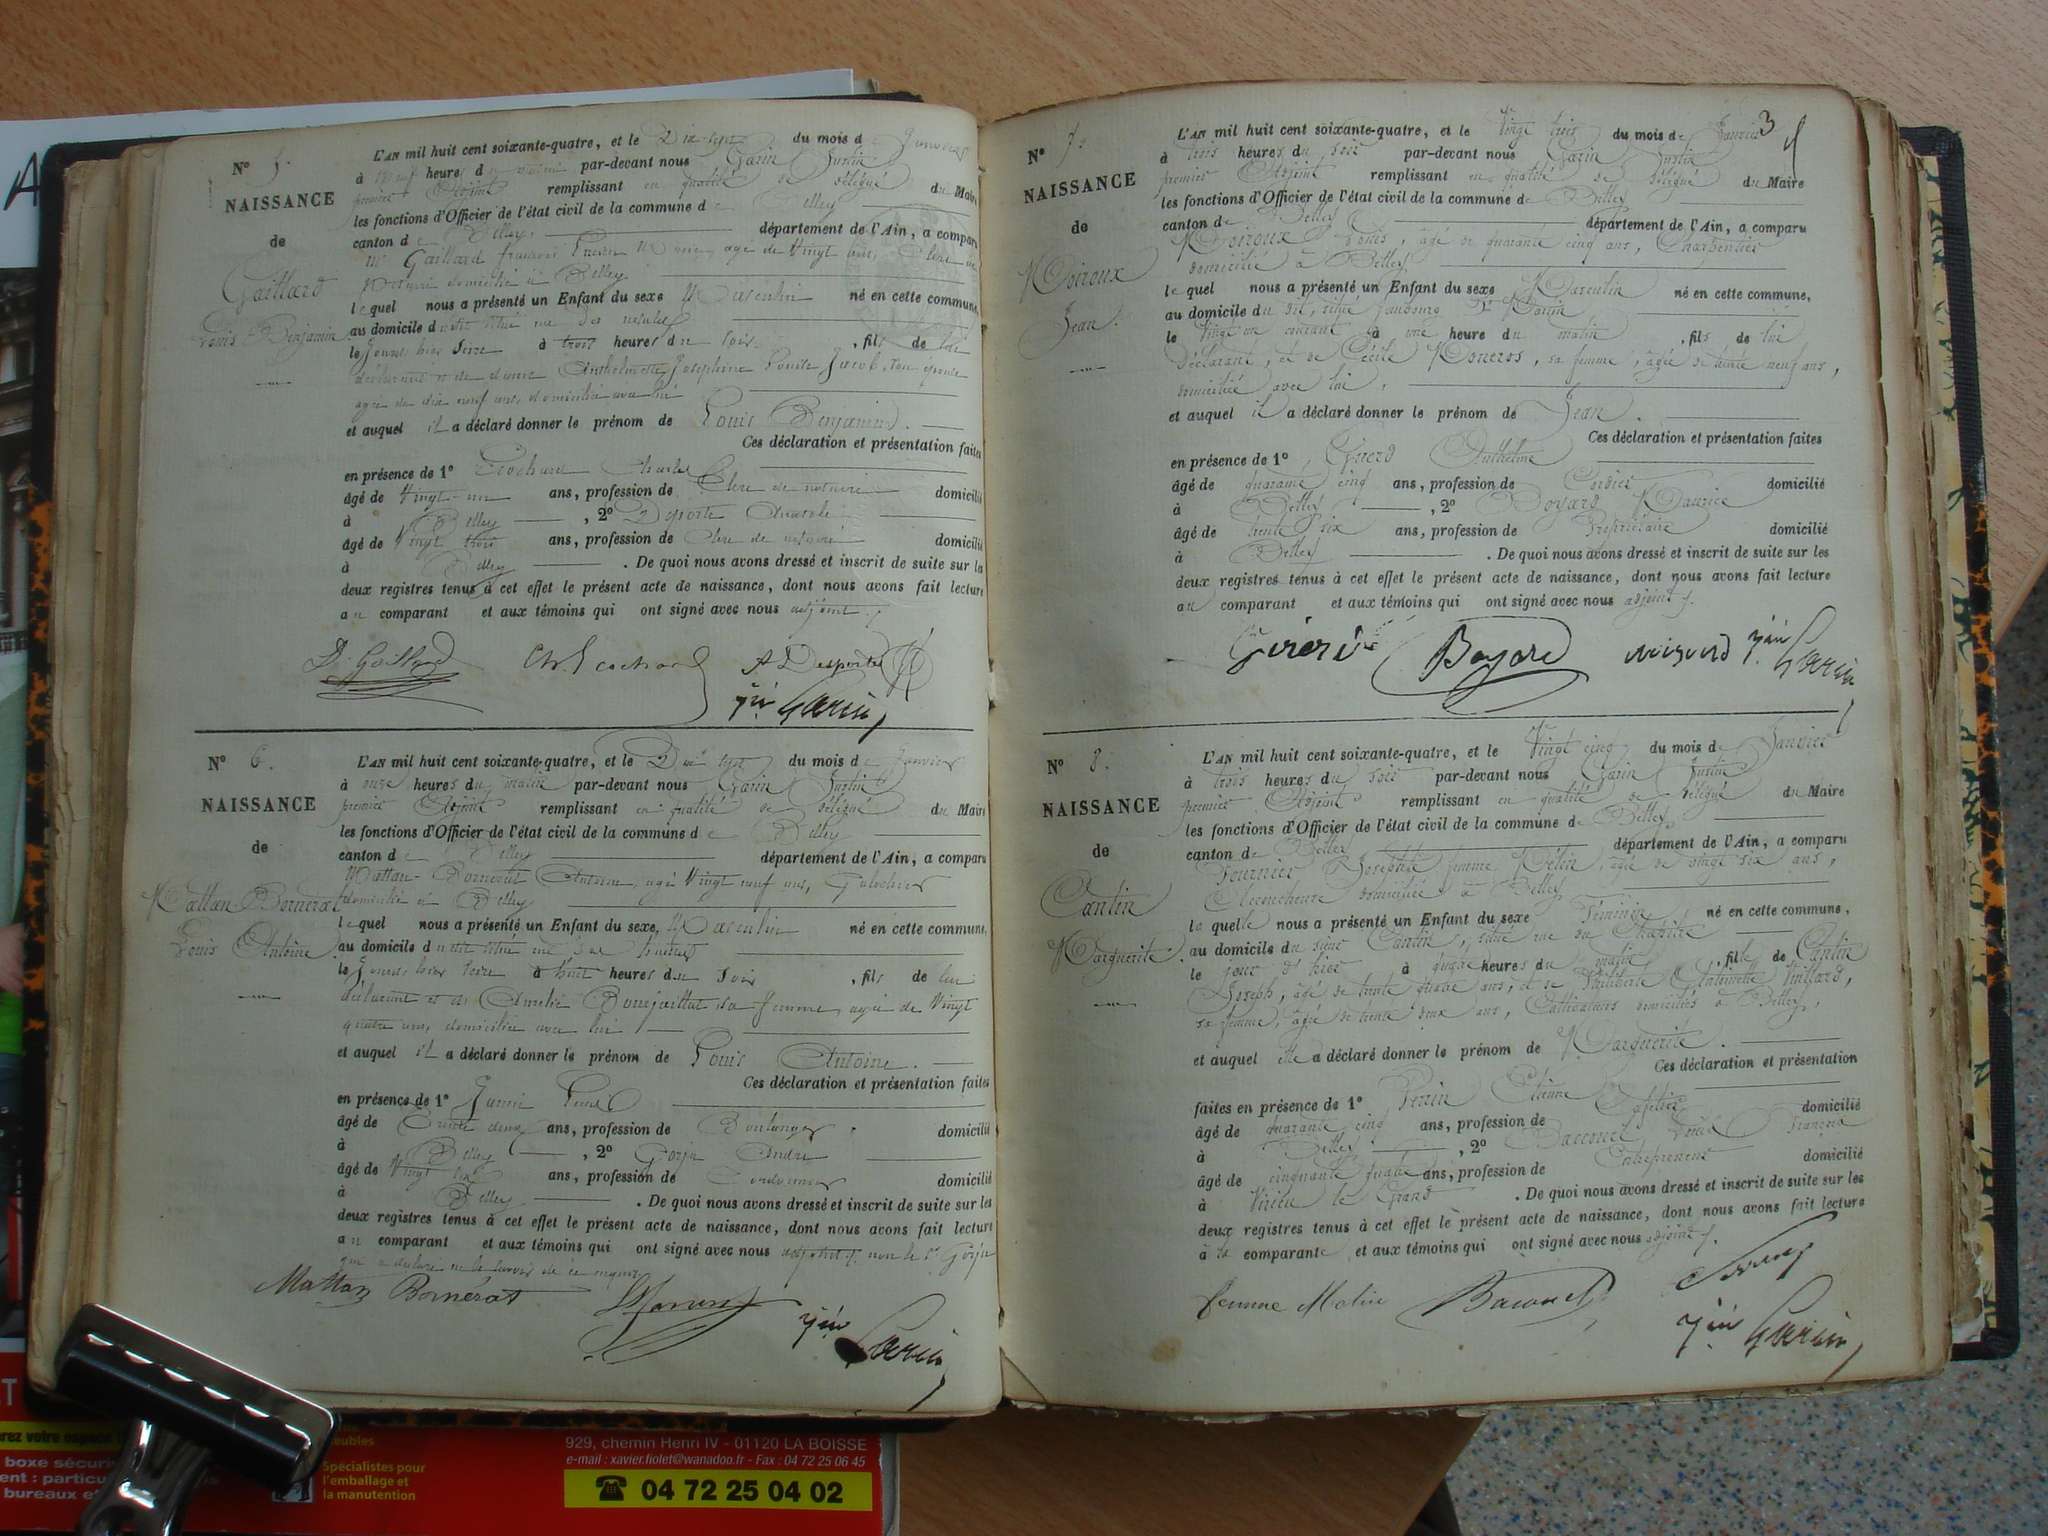 N° 5.
NAISSANCE
de
Gaillard
Louis Benjamin
L'AN mil huit cent soixante-quatre, et le Dix sept du mois de Janvier
à neuf heures du matin par-devant nous Garin Justin
premier Adjoint remplissant en qualité de délégué du Maire
les fonctions d'Officier de l'état civil de la commune de Belley
canton de Belley, département de l'Ain, a comparu
Mr Gaillard françois âgé de Vingt ans, Clerc de
Notaire domicilié à Belley
lequel nous a présenté un Enfant du sexe Masculin né en cette commune,
au domicile d situé rue des
le Jour hier à trois heures du soir, fils de lui
déclarant et de Anthelmette Joséphine Louise Jacob, son épouse
âgée de dix neuf ans, domiciliée avec lui
et auquel il a déclaré donner le prénom de Louis Benjamin.
Ces déclaration et présentation faites
en présence de 1° Ecochard Charles
âgé de Vingt-un ans, profession de Clerc de notaire domicilié
à Belley, 2° Desporte
âgé de Vingt trois ans, profession de Clerc de notaire domicilié
à Belley. De quoi nous avons dressé et inscrit de suite sur les
deux registres tenus à cet effet le présent acte de naissance, dont nous avons fait lecture
au comparant et aux témoins qui ont signé avec nous adjoint.
Gaillard Ch. Ecochard A Desporte
Jin Garin
N° 6.
NAISSANCE
de
Mattan-Bornérat
Louis Antoine
L'AN mil huit cent soixante-quatre, et le Dix sept du mois de Janvier
à onze heures du matin par-devant nous Garin Justin
premier Adjoint remplissant en qualité de délégué du Maire
les fonctions d'Officier de l'état civil de la commune de Belley
canton de Belley département de l'Ain, a comparu
Mattan-Bornérat Antoine, âgé Vingt neuf ans, Galochier
domicilié à Belley
lequel nous a présenté un Enfant du sexe Masculin né en cette commune,
au domicile d situé rue
le Jour hier à huit heures du soir, fils de lui
déclarant et de Amélie sa femme, âgée de Vingt
quatre ans, domiciliée avec lui
et auquel il a déclaré donner le prénom de Louis Antoine.
Ces déclaration et présentation faites
en présence de 1°
âgé de Trente deux ans, profession de Boulanger domicilié
à Belley, 2° Gorju André
âgé de Vingt six ans, profession de Cordonnier domicilié
à Belley. De quoi nous avons dressé et inscrit de suite sur les
deux registres tenus à cet effet le présent acte de naissance, dont nous avons fait lecture
au comparant et aux témoins qui ont signé avec nous adjoint non le Sr Gorju
qui a déclaré ne le savoir de ce requis
Mattan Bornérat Jin Garin
3
N° 7.
NAISSANCE
de
Noiroux
Jean.
L'AN mil huit cent soixante-quatre, et le Vingt trois du mois de Janvier
à trois heures du soir par-devant nous Garin Justin
premier Adjoint remplissant en qualité de délégué du Maire
les fonctions d'Officier de l'état civil de la commune de Belley
canton de Belley département de l'Ain, a comparu
Noiroux Louis, âgé de quarante cinq ans, Charpentier
domicilié à Belley
lequel nous a présenté un Enfant du sexe Masculin né en cette commune,
au domicile du dit, situé faubourg St Martin
le Vingt un courant à une heure du matin, fils de lui
déclarant, et de Cécile Moneros, sa femme, âgée de trente neuf ans,
domiciliée avec lui,
et auquel il a déclaré donner le prénom de Jean.
Ces déclaration et présentation faites
en présence de 1° Girerd Anthelme
âgé de quarante cinq ans, profession de Cordier domicilié
à Belley, 2° Boyard Maurice
âgé de trente six ans, profession de Propriétaire domicilié
à Belley. De quoi nous avons dressé et inscrit de suite sur les
deux registres tenus à cet effet le présent acte de naissance, dont nous avons fait lecture
au comparant et aux témoins qui ont signé avec nous adjoint.
Girerd Boyard Jin Garin
N° 8.
NAISSANCE
de
Cantin
Marguerite.
L'AN mil huit cent soixante-quatre, et le Vingt cinq du mois de Janvier
à trois heures du soir par-devant nous Garin Justin
premier Adjoint remplissant en qualité de délégué du Maire
les fonctions d'Officier de l'état civil de la commune de Belley
canton de Belley département de l'Ain, a comparu
Fournier Josephte femme Mélin, âgée de vingt six ans,
Accoucheuse domiciliée à Belley
laquelle nous a présenté un Enfant du sexe Féminin né en cette commune,
au domicile du sieur Cantin, situé rue du Chapitre
le jour d'hier à quatre heures du matin, fille de Cantin
Joseph, âgé de trente quatre ans, et de Philiberte Antoinette Vuillard,
sa femme, âgée de trente deux ans, Cultivateurs domiciliés à Belley,
et auquel elle a déclaré donner le prénom de Marguerite.
Ces déclaration et présentation
faites en présence de 1° Perrin Etienne
âgé de quarante cinq ans, profession de Cafetier domicilié
à Belley, 2° Baccouel Louis François
âgé de cinquante quatre ans, profession de Entrepreneur domicilié
à Virieu le Grand. De quoi nous avons dressé et inscrit de suite sur les
deux registres tenus à cet effet le présent acte de naissance, dont nous avons fait lecture
à la comparante et aux témoins qui ont signé avec nous adjoint.
femme Melin Jin Garin
meubles
boxe sécuri
ent : particul
bureaux et
Spécialistes pour
l'emballage et
la manutention
929, chemin Henri IV - 01120 LA BOISSE
e-mail : xavier.fiolet@wanadoo.fr - Fax : 04 72 25 06 45
04 72 25 04 02